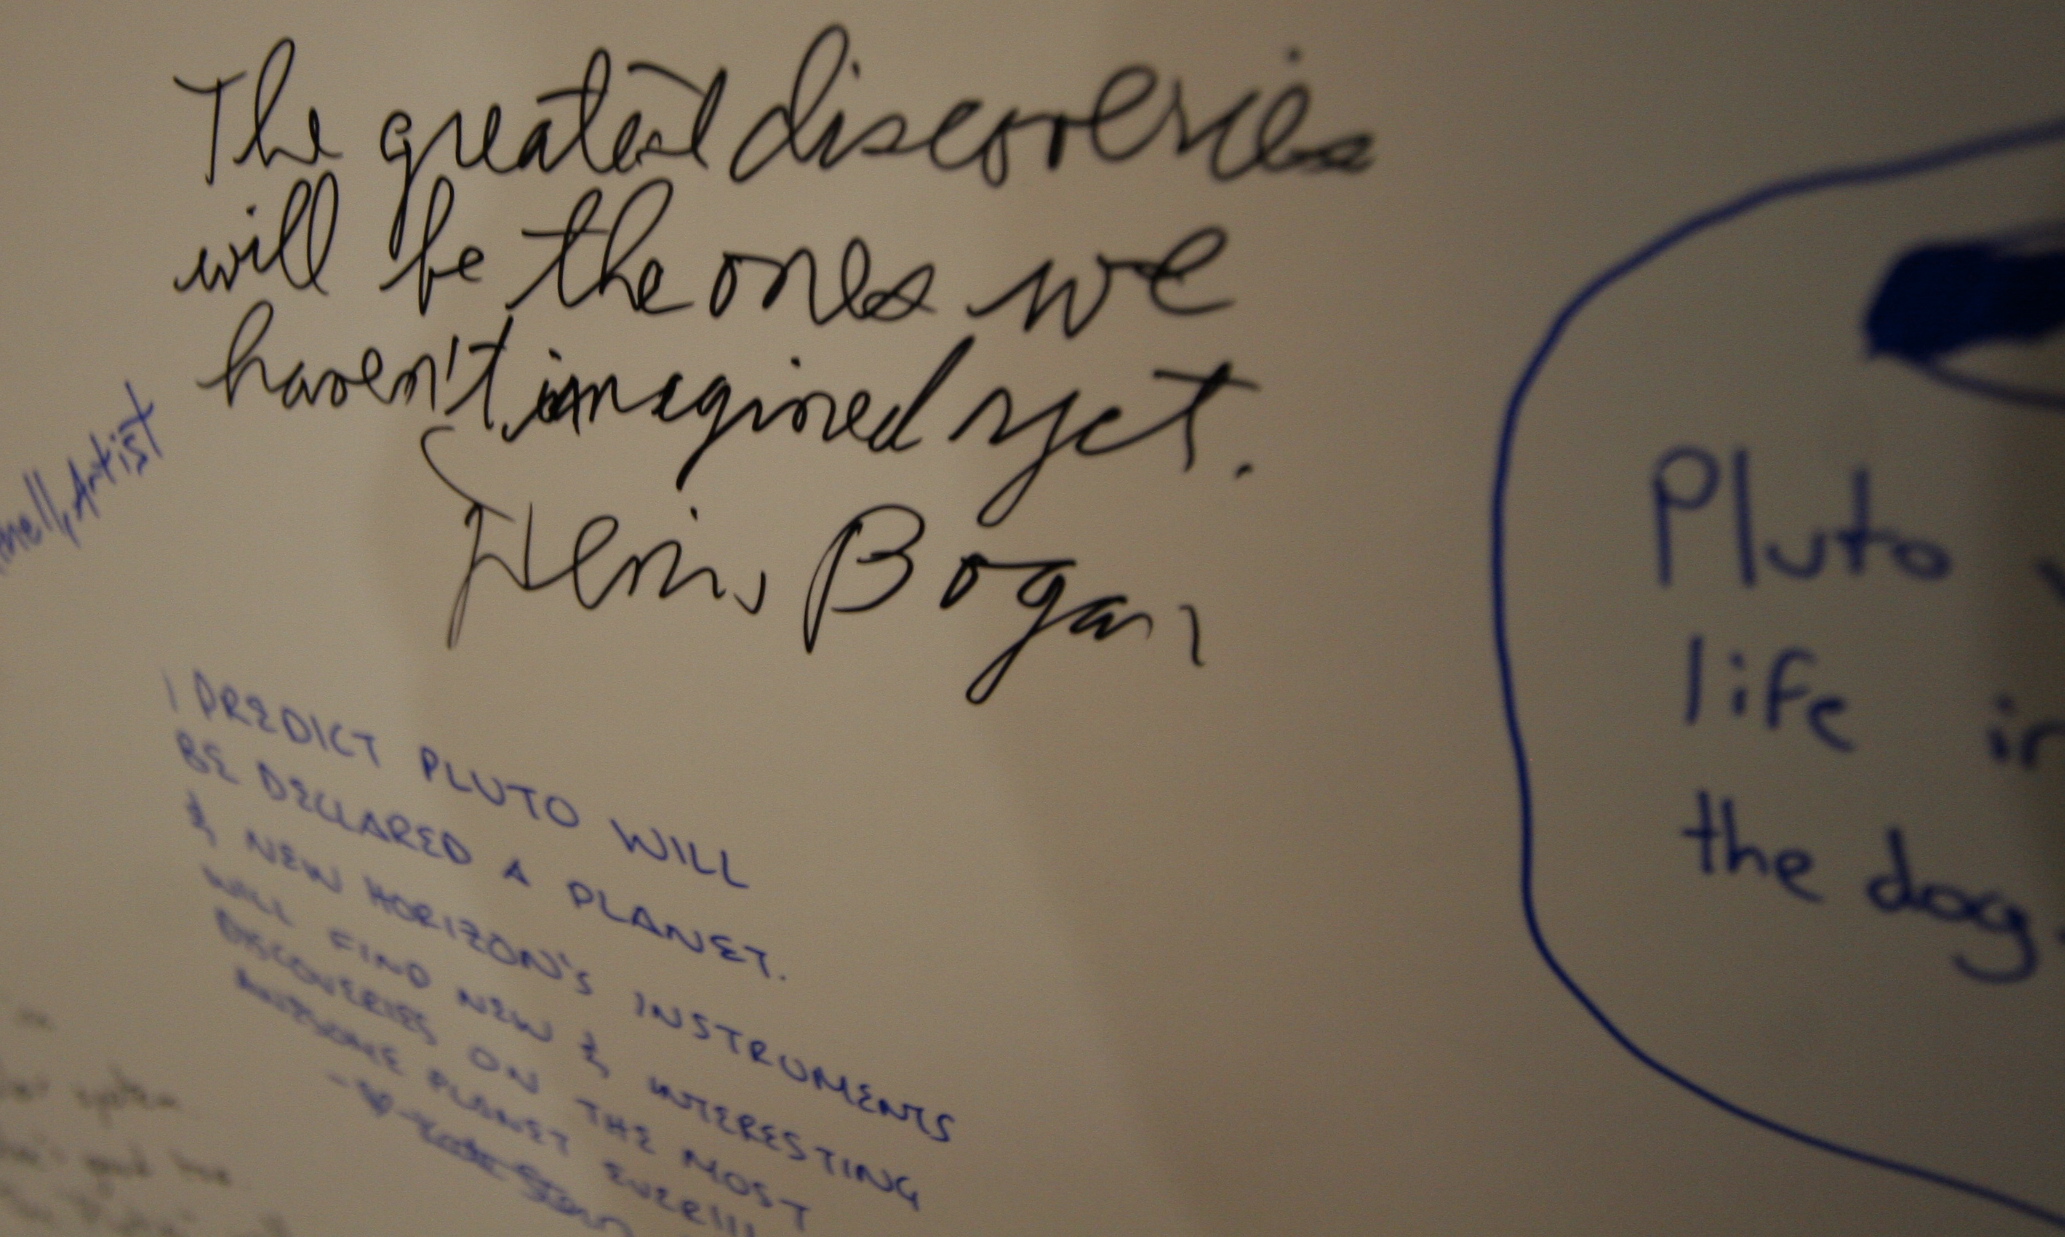 The greatest discoveries
will be the ones we
haven't imagined yet.
Denis Bogan
Artist
I PREDICT PLUTO WILL
BE DECLARED A PLANET.
& NEW HORIZON'S INSTRUMENTS
WILL FIND NEW & INTERESTING
DISCOVERIES ON THE MOST
AWESOME PLANET EVER!!!
system
Pluto
life in
the dog